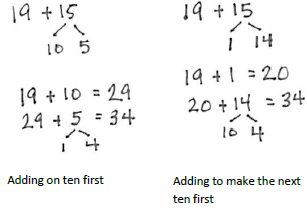 19 + 15
10 5
19 + 10 = 29
29 + 5 = 34
1 4
Adding on ten first
19 + 15
1 14
19 + 1 = 20
20 + 14 = 34
10 4
Adding to make the next
ten first